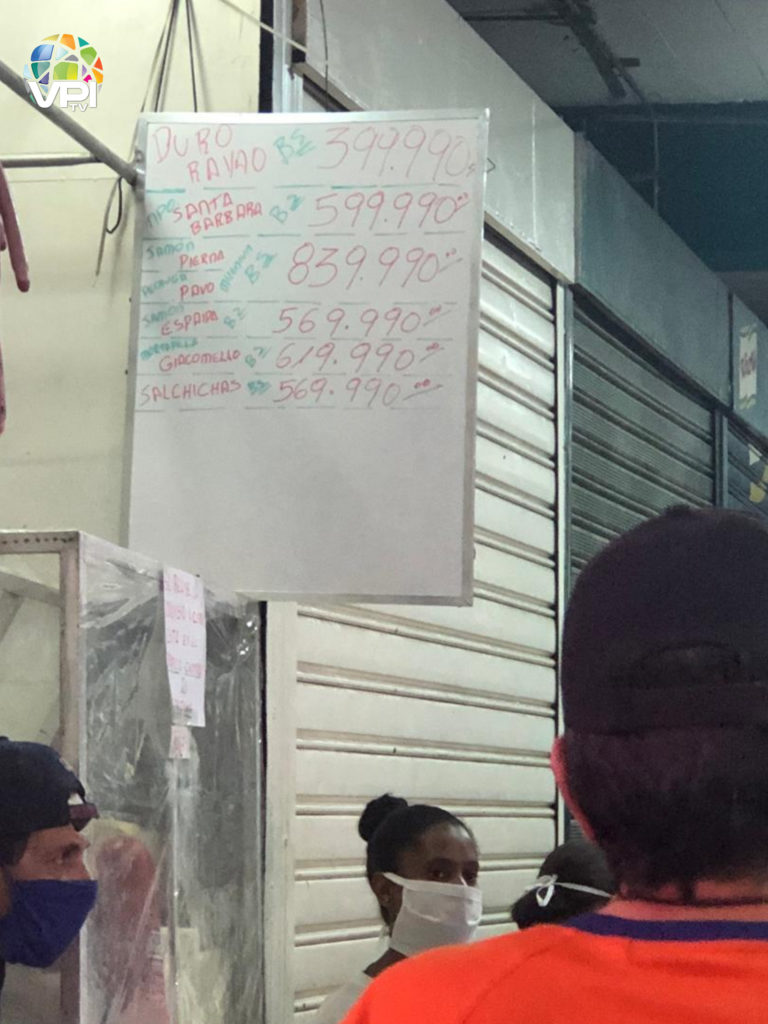 VPI
TV
DURO
RAYAO BS 399.990
TIPO SANTA
BARBARA BS 599.990
JAMON
PIERNA
PECHUGA
PAVO BS 839.990
JAMON
ESPALDA BS 569.990
MORTADELLA
GIACOMELLO BS 619.990
SALCHICHAS BS 569.990